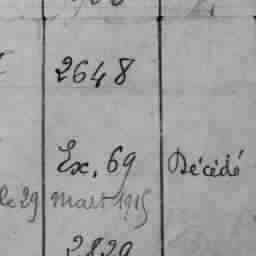 2648
Ex. 69 Décédé
le 29 mars 1915
2829